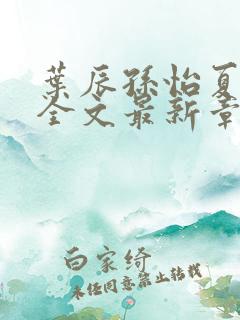 葉辰孫怡夏
全文最新章
白家绮
未经同意禁止转载